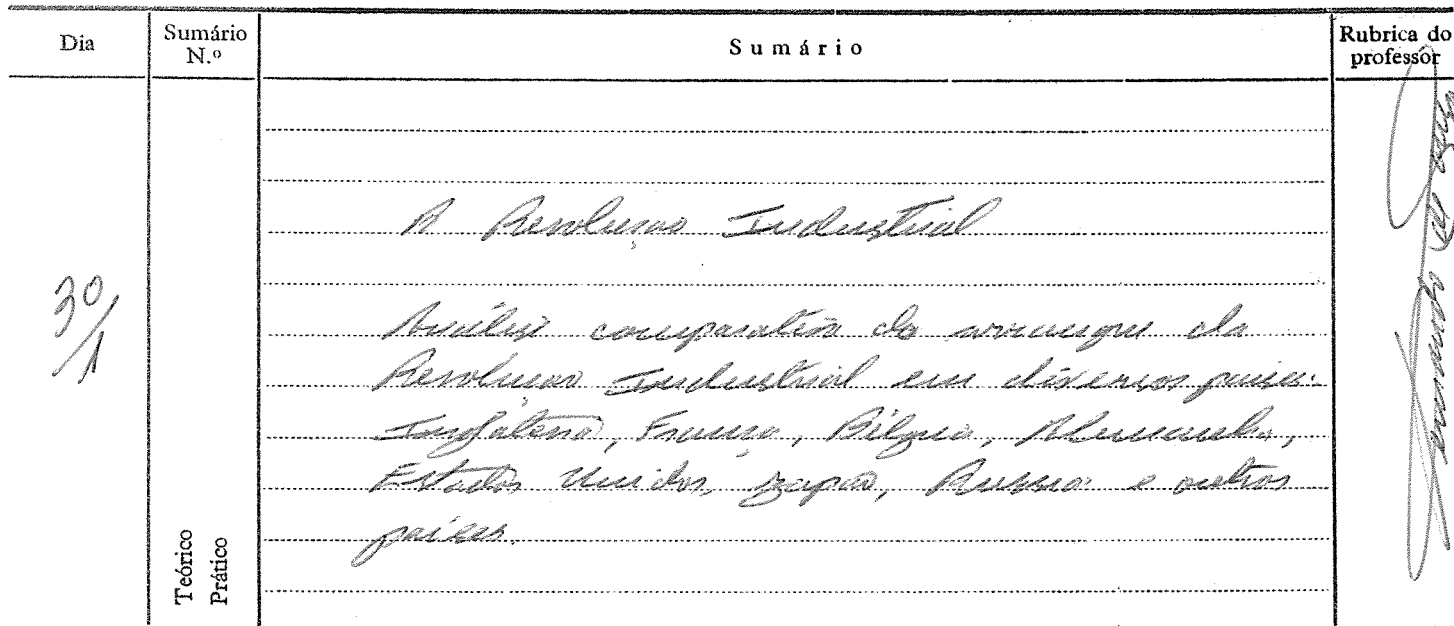 Dia
Sumário N.º
Sumário
Rubrica do professor
30/1
Teórico
Prático
A Revolução Industrial
Análise comparativa do arranque da
Revolução Industrial em diversos países:
Inglaterra, França, Bélgica, Alemanha,
Estados Unidos, Japão, Rússia e outros
países.